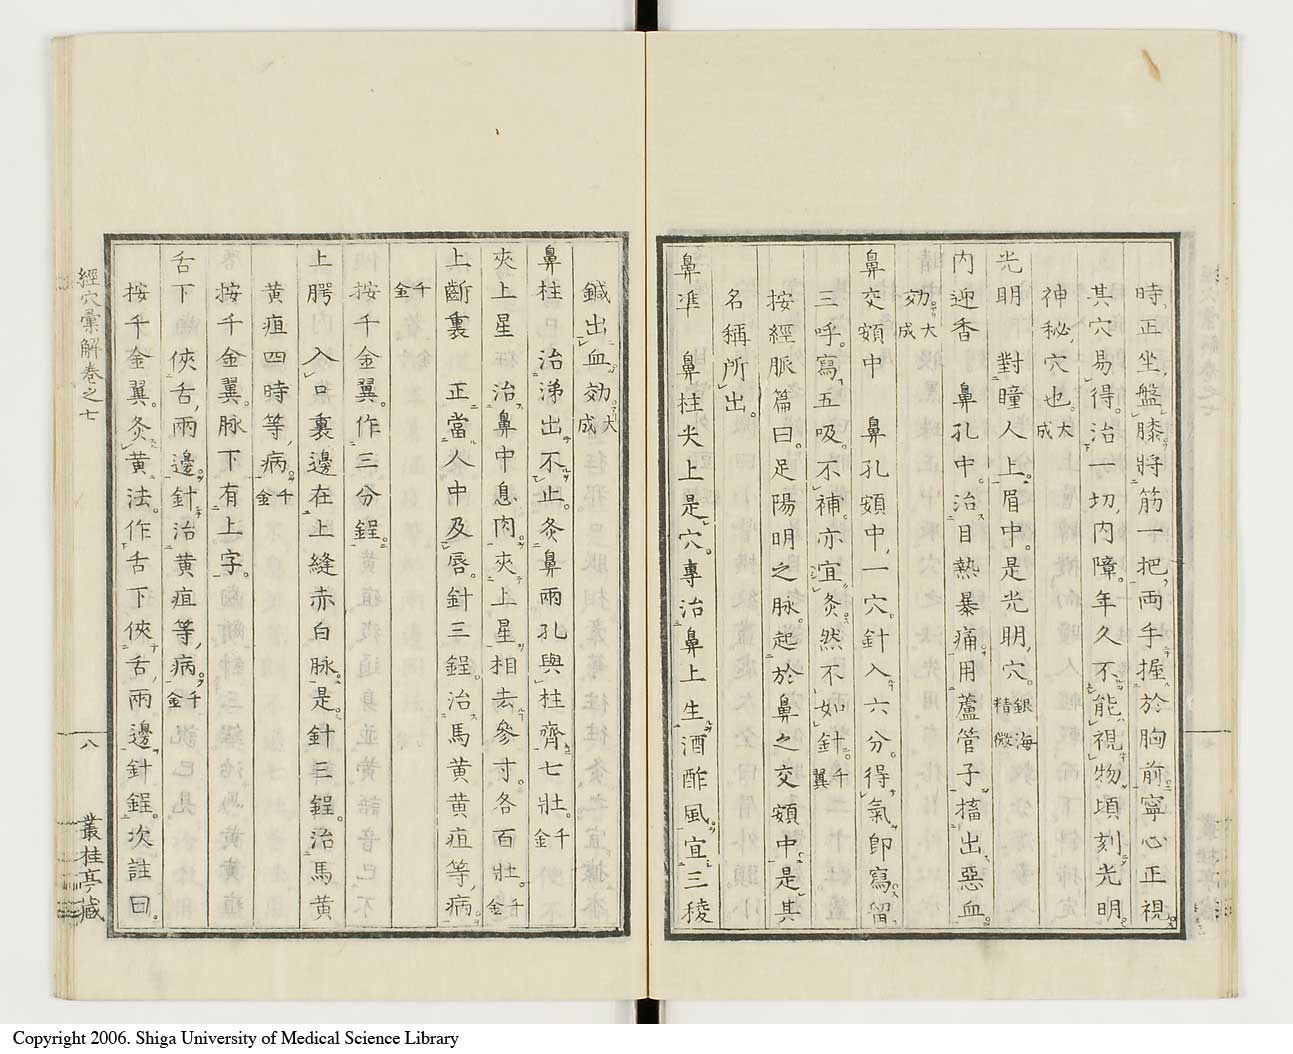 時正坐盤膝將筋一把両手握於胸前寧心正視
其穴易得治一切内障年久不能視物頃刻光明
神秘穴也 大成
光明 對瞳人上眉中是光明穴 銀海精微
内迎香 鼻孔中治目熱暴痛用蘆管子搐出惡血
効 大成
鼻交頞中 鼻孔頞中一穴針入六分得氣即寫留
三呼寫五吸不補亦宜灸然不如針 千翼
按經脈篇曰足陽明之脉起於鼻之交頞中是其
名稱所出
鼻準 鼻柱尖上是穴專治鼻上生酒酢風宜三稜
鍼出血効 大成
鼻柱 治涕出不止灸鼻兩孔與柱齊七壯 千金
夾上星 治鼻中息肉夾上星相去參寸各百壯 千金
上齗裏 正當人中及唇針三鋥治馬黄黄疸等病
千金
按千金翼作三分鋥
上腭 入口裏邊在上縫赤白脉是針三鋥治馬黄
黄疸四時等病 千金
按千金翼脉下有上字
舌下 俠舌兩邊針治黄疸等病 千金
按千金翼灸黄法作舌下俠舌兩邊針鋥次註曰
經穴彙解卷之七
八
叢桂亭藏
Copyright 2006. Shiga University of Medical Science Library